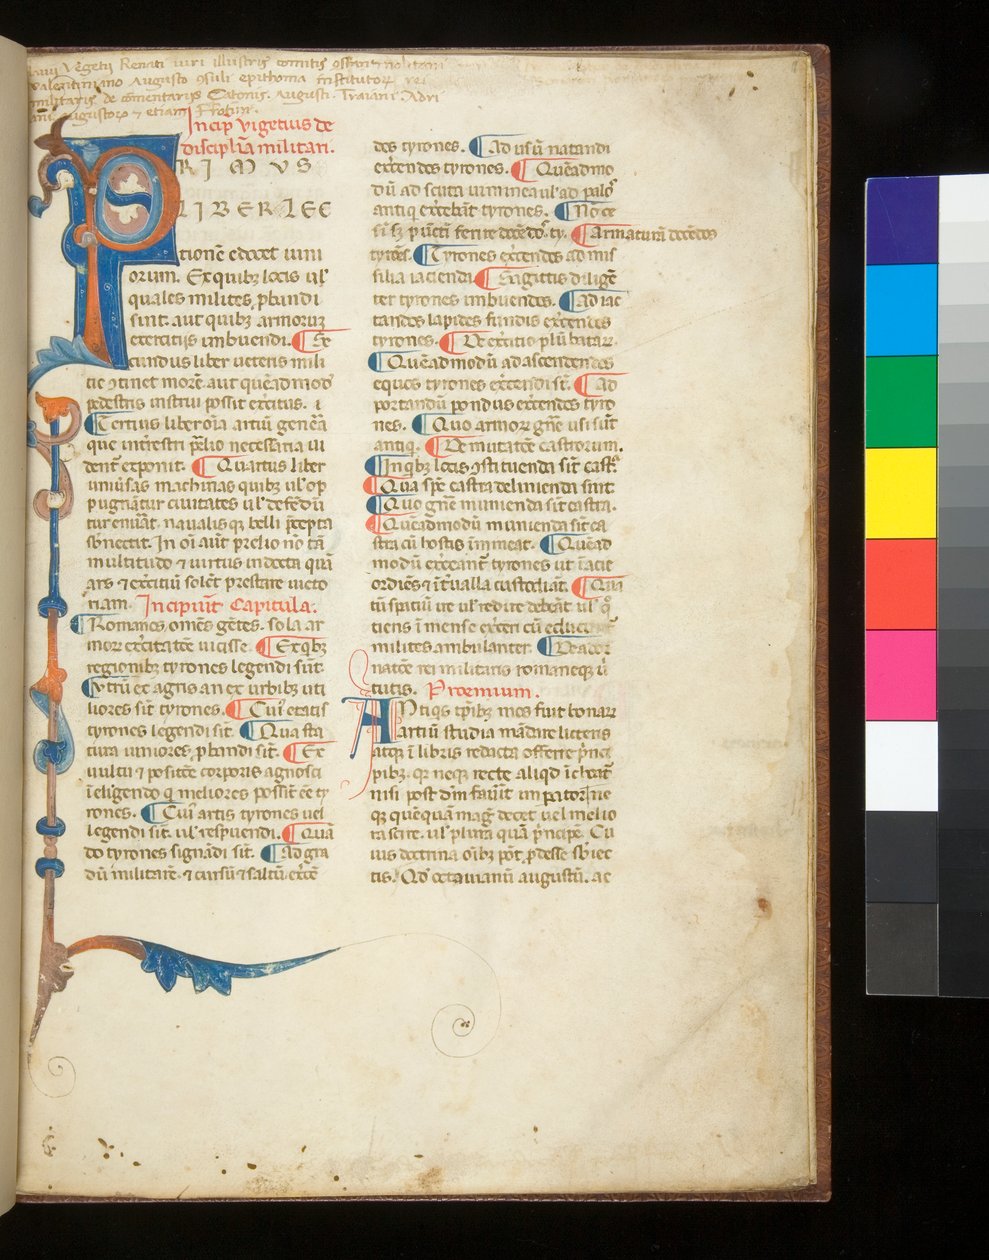 Flavii Vegetii Renati viri illustris comitis
Valentiniano Augusto osuli epithoma institutorꝝ rei
militaris de cōmentarijs Catonis. Augusti. Traiani Adri
ani Augustorꝝ ⁊ etiam Frōtini.
Incip̄ vigetius de
disciplīa militari.
PRIMVS
LIBER LEC
tionē edocet iuni
orum. Ex quibꝫ locis ul'
quales milites ꝓbandi
sint. aut quibꝫ armoruꝫ
exercitijs imbuendi. ¶ Se
cundus liber ueteris mili
tie ↄtinet morē. aut quēadmodꝰ
pedestris instrui possit exercitus. i
¶ Tertius liber oīa artiū genera
que īterrestri p̄lio necessaria ui
dent᷑ exponit. ¶ Quartus liber
uniuersas machinas quibꝫ ul' op
pugnātur ciuitates ul' defēdūn
tur enūtiat. naualis qꝫ belli p̄cepta
sb̄nectit. In oī aūt prelio nō tā
multitudo ⁊ uirtus indocta quā
ars ⁊ exercitiū solēt prestare uicto
riam. Incipiūt Capitula.
¶ Romanos omēs gētes. sola ar
morꝝ exercitatiōe uicisse. ¶ Ex qbꝫ
regionibꝫ tyrones legendi sūnt
¶ Vtrū ex agris an ex urbibꝫ uti
liores sīt tyrones. ¶ Cuiꝰ etatis
tyrones legendi sīt. ¶ Qua sta
tura iuniores ꝓbandi sīt. ¶ Ex
uultu ⁊ positiōe corporis agnosci
ī eligendo q̄ meliores possīt eē ty
rones. ¶ Cuiꝰ artis tyrones uel
legendi sīt. ul' respuendi. ¶ Quā
do tyrones signādi sīt. ¶ Ad gra
dū militarē. ⁊ cursū ⁊ saltū exercē
dos tyrones. ¶ Ad usū natandi
exercēdos tyrones. ¶ Quēadmo
dū ad scuta uiminea ul' ad palos
antiqi exercebāt tyrones. ¶ Nō ce
sī sꝫ pūctī ferire docēdos ty. ¶ Armaturā docēdos
tyrōes. ¶ Tyrones exercēdos ad mis
silia iacienda ¶ Sagittis diligē
ter tyrones imbuendos. ¶ Ad iac
tandos lapides fundis exercēdos
tyrones. ¶ De exercitio plūbatarꝝ.
¶ Quēadmodū ad ascendendos
equos tyrones exercendi sīt. ¶ Ad
portandū pondus exercendos tyro
nes. ¶ Quo armorꝝ gn̄e usi sūt
antiqi. ¶ De mutatiōe castrorum.
¶ In qbꝫ locis ↄstituenda sīt cast̄ꝰ.
¶ Qua spē castra delinienda sint
¶ Quo gn̄e munienda sīt castra.
¶ Quēadmodū munienda sīt ca
stra cū hostis īmineat. ¶ Quēad
modū exerceant᷑ tyrones ut ī acie
ordīes ⁊ īt̄ualla custodiāt. ¶ Quā
tū spatiū ire ul' redire debeāt ul' q̄
tiens ī mense exerceri cū educūtur
milites ambulanter. ¶ De ador
natiōe rei militaris romaneqꝫ uī
tutis. Proemium.
ANtiqs tp̄ibꝫ mos fuit bonarꝝ
artiū studia mādare literis
atqꝫ ī libris redacta offerre p̄nci
pibꝫ. qꝛ neqꝫ recte aliqd īchoat᷑
nisi post dm̄ fauīt impator. ne
qꝫ quēquā magꝭ decet uel melio
ra scire. ul' plura quā p̄ncipē. Cu
ius doctrina oībꝫ pōt ꝓdesse sb̄iec
tis. Qd̄ octauianū augustū. ac